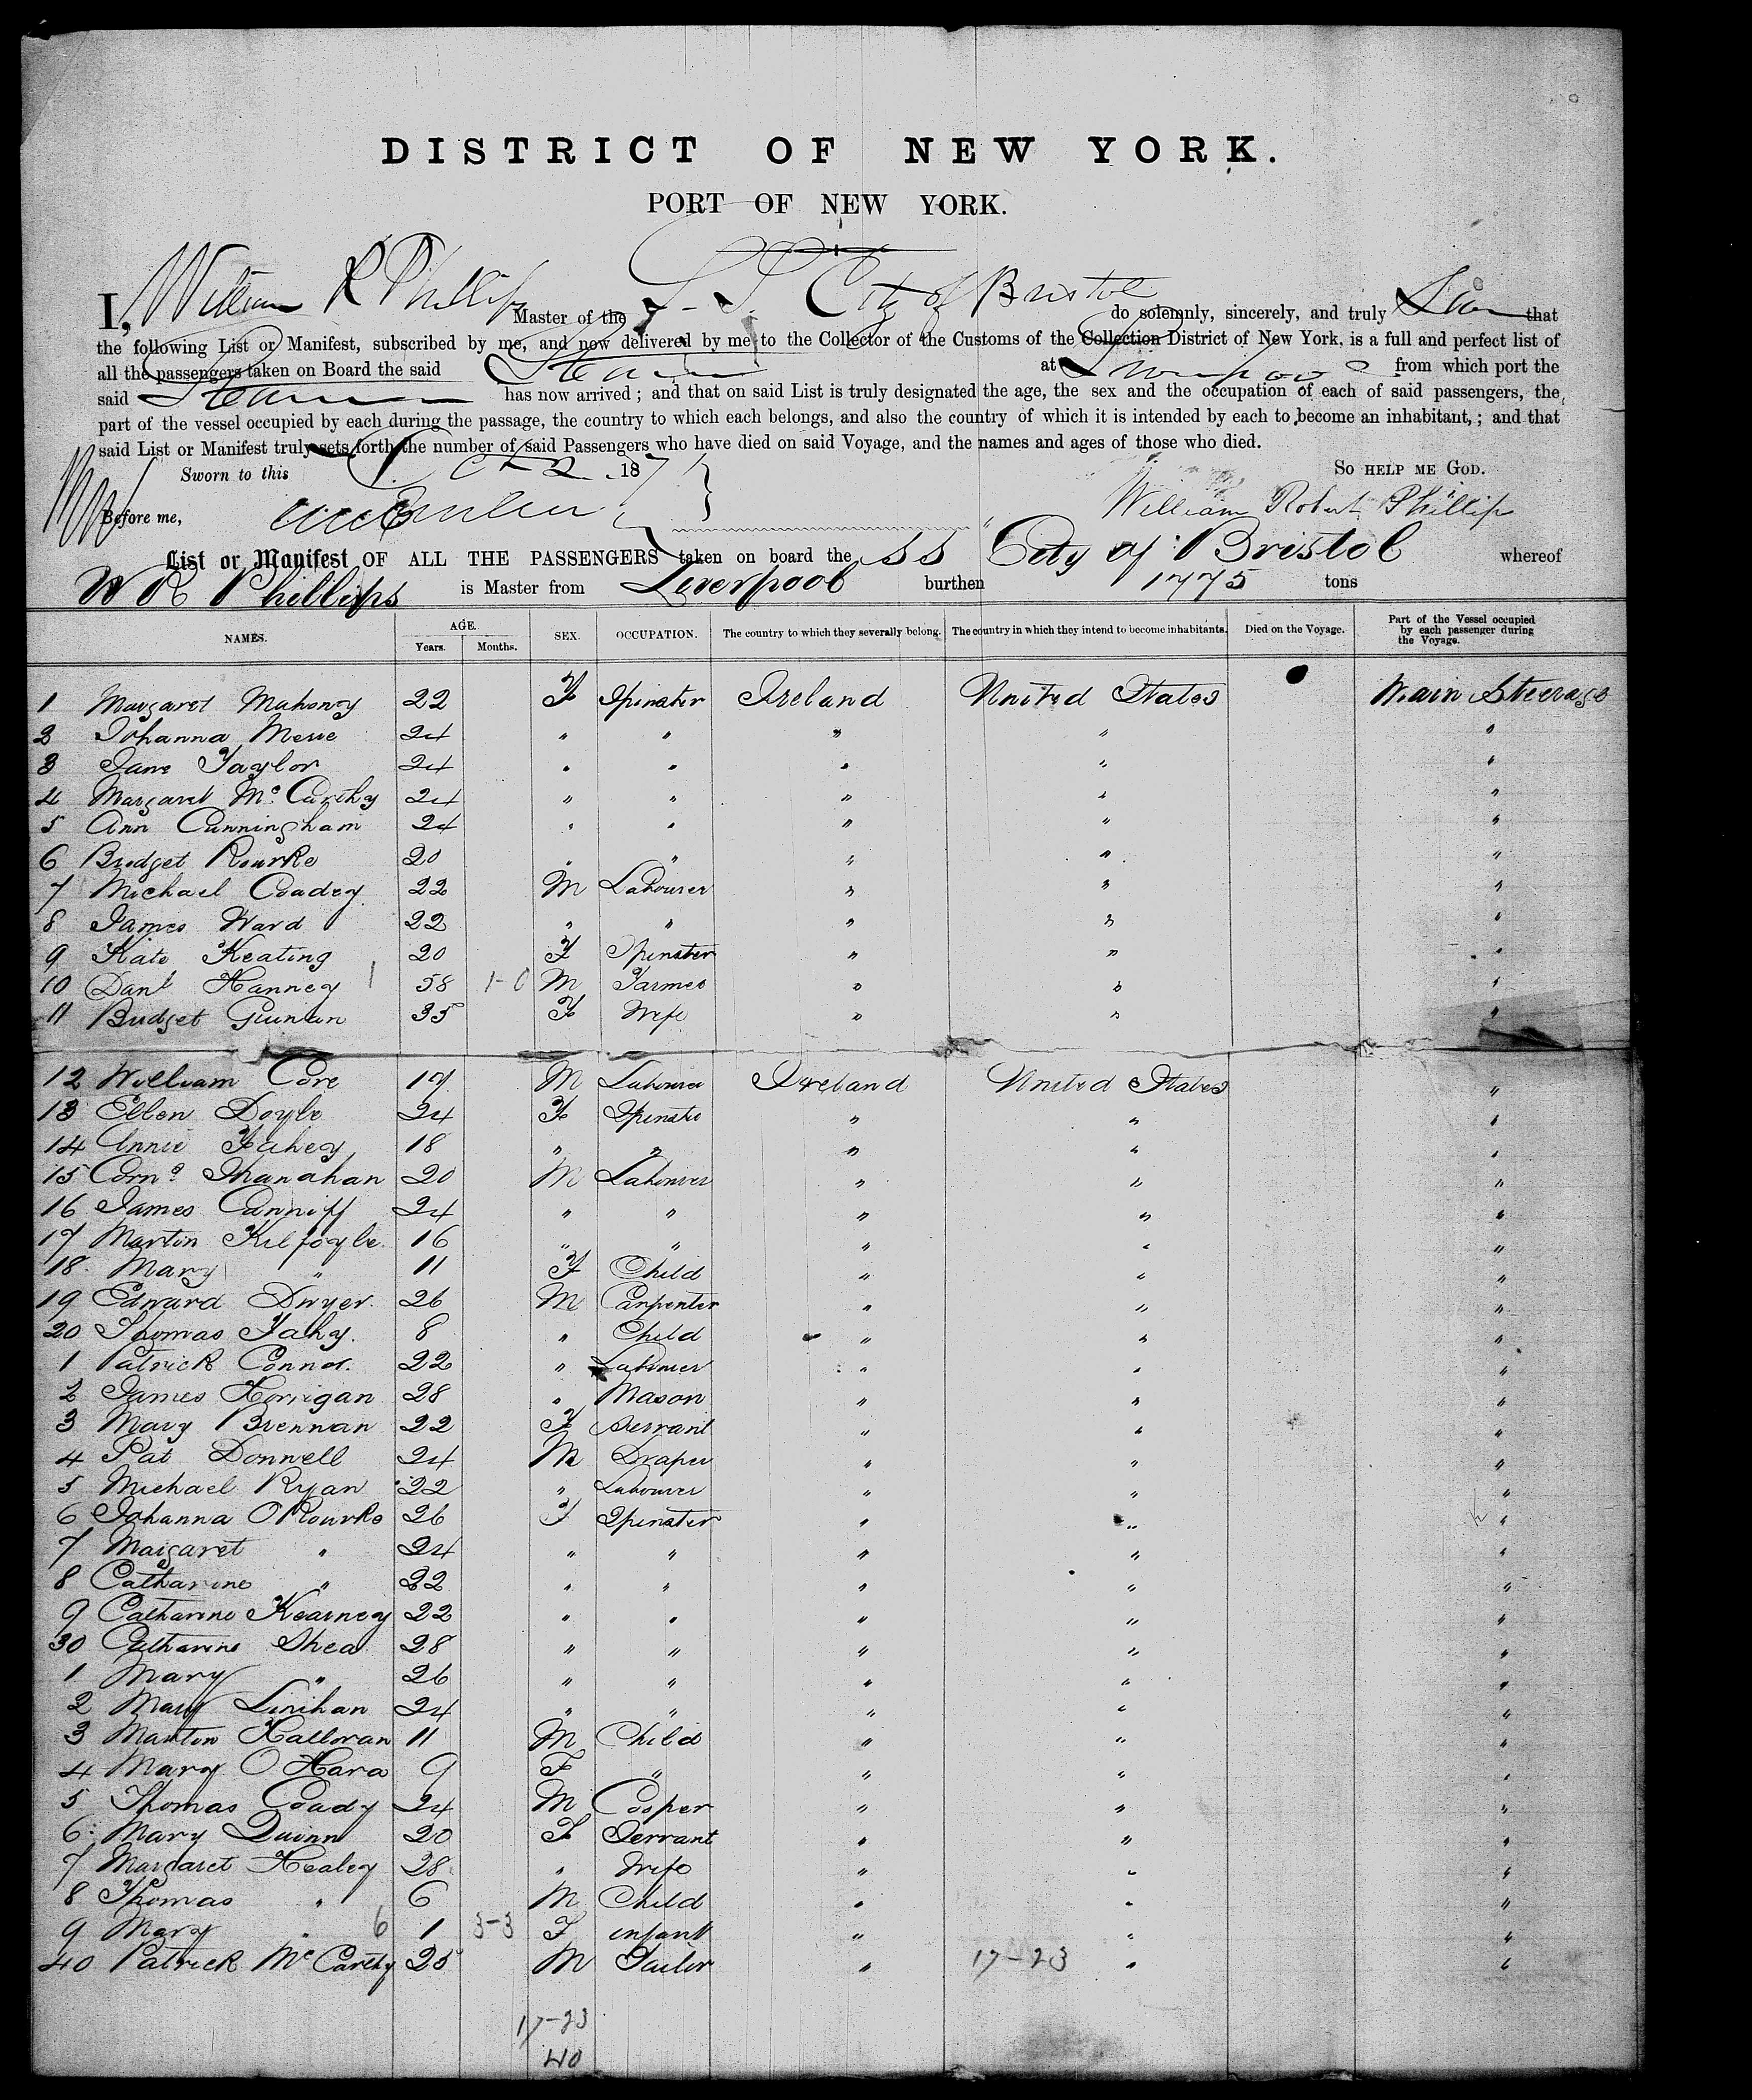 DISTRICT OF NEW YORK.
PORT OF NEW YORK.
I, William R Phillips Master of the S. S. City of Bristol do solemnly, sincerely, and truly that
the following List or Manifest, subscribed by me, and now delivered by me to the Collector of the Customs of the Collection District of New York, is a full and perfect list of
all the passengers taken on Board the said Steamer at Liverpool from which port the
said Steamer has now arrived; and that on said List is truly designated the age, the sex and the occupation of each of said passengers, the
part of the vessel occupied by each during the passage, the country to which each belongs, and also the country of which it is intended by each to become an inhabitant,; and that
said List or Manifest truly sets forth the number of said Passengers who have died on said Voyage, and the names and ages of those who died.
Sworn to this 187 SO HELP ME GOD.
Before me, William Robert Phillips
List or Manifest OF ALL THE PASSENGERS taken on board the SS City of Bristol whereof
W R Phillips is Master from Liverpool burthen 1775 tons
NAMES. AGE. Years. Months. SEX. OCCUPATION. The country to which they severally belong. The country in which they intend to become inhabitants. Died on the Voyage. Part of the Vessel occupied by each passenger during the Voyage.
1 Margaret Mahoney 22 F Spinster Ireland United States Main Steerage
2 Johanna 24 " " " " "
3 Jane Taylor 24 " " " " "
4 Margaret Mc Carthy 24 " " " " "
5 Ann Cunningham 24 " " " " "
6 Bridget Rourke 20 " " " " "
7 Michael Coadey 22 M Labourer " " "
8 James Ward 22 " " " " "
9 Kate Keating 20 F Spinster " " "
10 Danl Hanney 1 58 M Farmer " " "
11 Bridget Guinan 35 F Wife " " "
12 William Core 17 M Labourer Ireland United States "
13 Ellen Doyle 24 F Spinster " " "
14 Annie Fahey 18 " " " " "
15 Corns Shanahan 20 M Labourer " " "
16 James Canniff 24 " " " " "
17 Martin Kilfoyle 16 " " " " "
18 Mary " 11 F Child " " "
19 Edward Dwyer. 26 M Carpenter " " "
20 Thomas Fahy. 8 " Child " " "
1 Patrick Connor. 22 " Labourer " " "
2 James Horrigan 28 " Mason " " "
3 Mary Brennan 22 F Servant " " "
4 Pat Donnell 24 M Draper " " "
5 Michael Ryan 22 " Labourer " " "
6 Johanna O Rourke 26 F Spinster " " "
7 Margaret " 24 " " " " "
8 Catharine " 22 " " " " "
9 Catharine Kearney 22 " " " " "
30 Catharine Shea 28 " " " " "
1 Mary " 26 " " " " "
2 Mary Linihan 24 " " " " "
3 Martin Halloran 11 M Child " " "
4 Mary O Hara 9 F " " " "
5 Thomas Coady 24 M Cooper " " "
6 Mary Quinn 20 F Servant " " "
7 Margaret Healey 28 " Wife " " "
8 Thomas " 6 M Child " " "
9 Mary " 6 1 3-3 F infant " " "
40 Patrick Mc Carthy 25 M Tailor " 17-23 " "
17-23
40